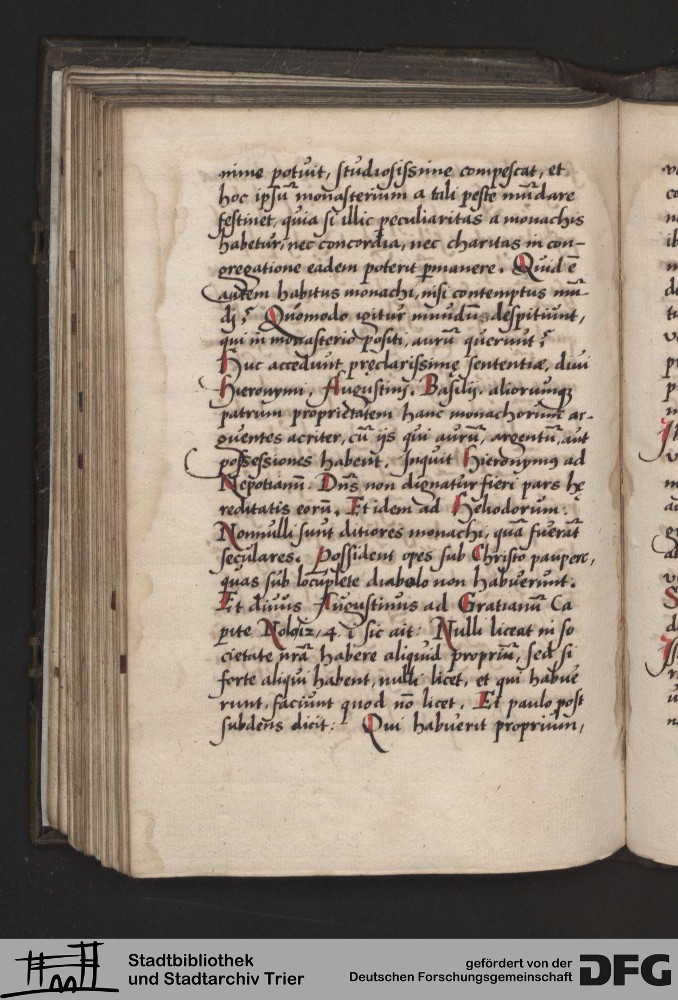 nime potuit, studiosissime compescat, et
hoc ipsū monasterium a tali peste mūdare
festinet, quia si illic peculiaritas a monachis
habetur, nec concordia, nec charitas in con-
gregatione eadem poterit pmanere. Quid ē
autem habitus monachi, nisi contemptus mū-
dj? Quomodo igitur mundū despitiunt,
qui in monasterio positi, aurū querunt?
Huc accedunt pręclarissimę sententiæ, diui
Hieronymi, Augustini, Basilij, aliorumqȝ
patrum proprietatem hanc monachorum ar-
guentes acriter, cū ijs qui aurū, argentū, aut
possessiones habent. Inquit Hieronymꝰ ad
Nepotianū. Dn̄s non dignatur fieri pars hę
reditatis eorū. Et idem ad Heliodorum:
Nonnulli sunt ditiores monachi, quā fuerāt
sęculares. Possident opes sub Christo paupere,
quas sub locuplete diabolo non habuerunt.
Et diuus Augustinus ad Gratianū Ca
pite 4. sic ait: Nulli liceat in so
cietate nr̄a habere aliquid propriū, sed si
forte aliqui habent, nulli licet, et qui habue
runt, faciunt quod nō licet. Et paulo post
subdens dicit: Qui habuerit proprium,
Stadtbibliothek
und Stadtarchiv Trier
gefördert von der
Deutschen Forschungsgemeinschaft
DFG